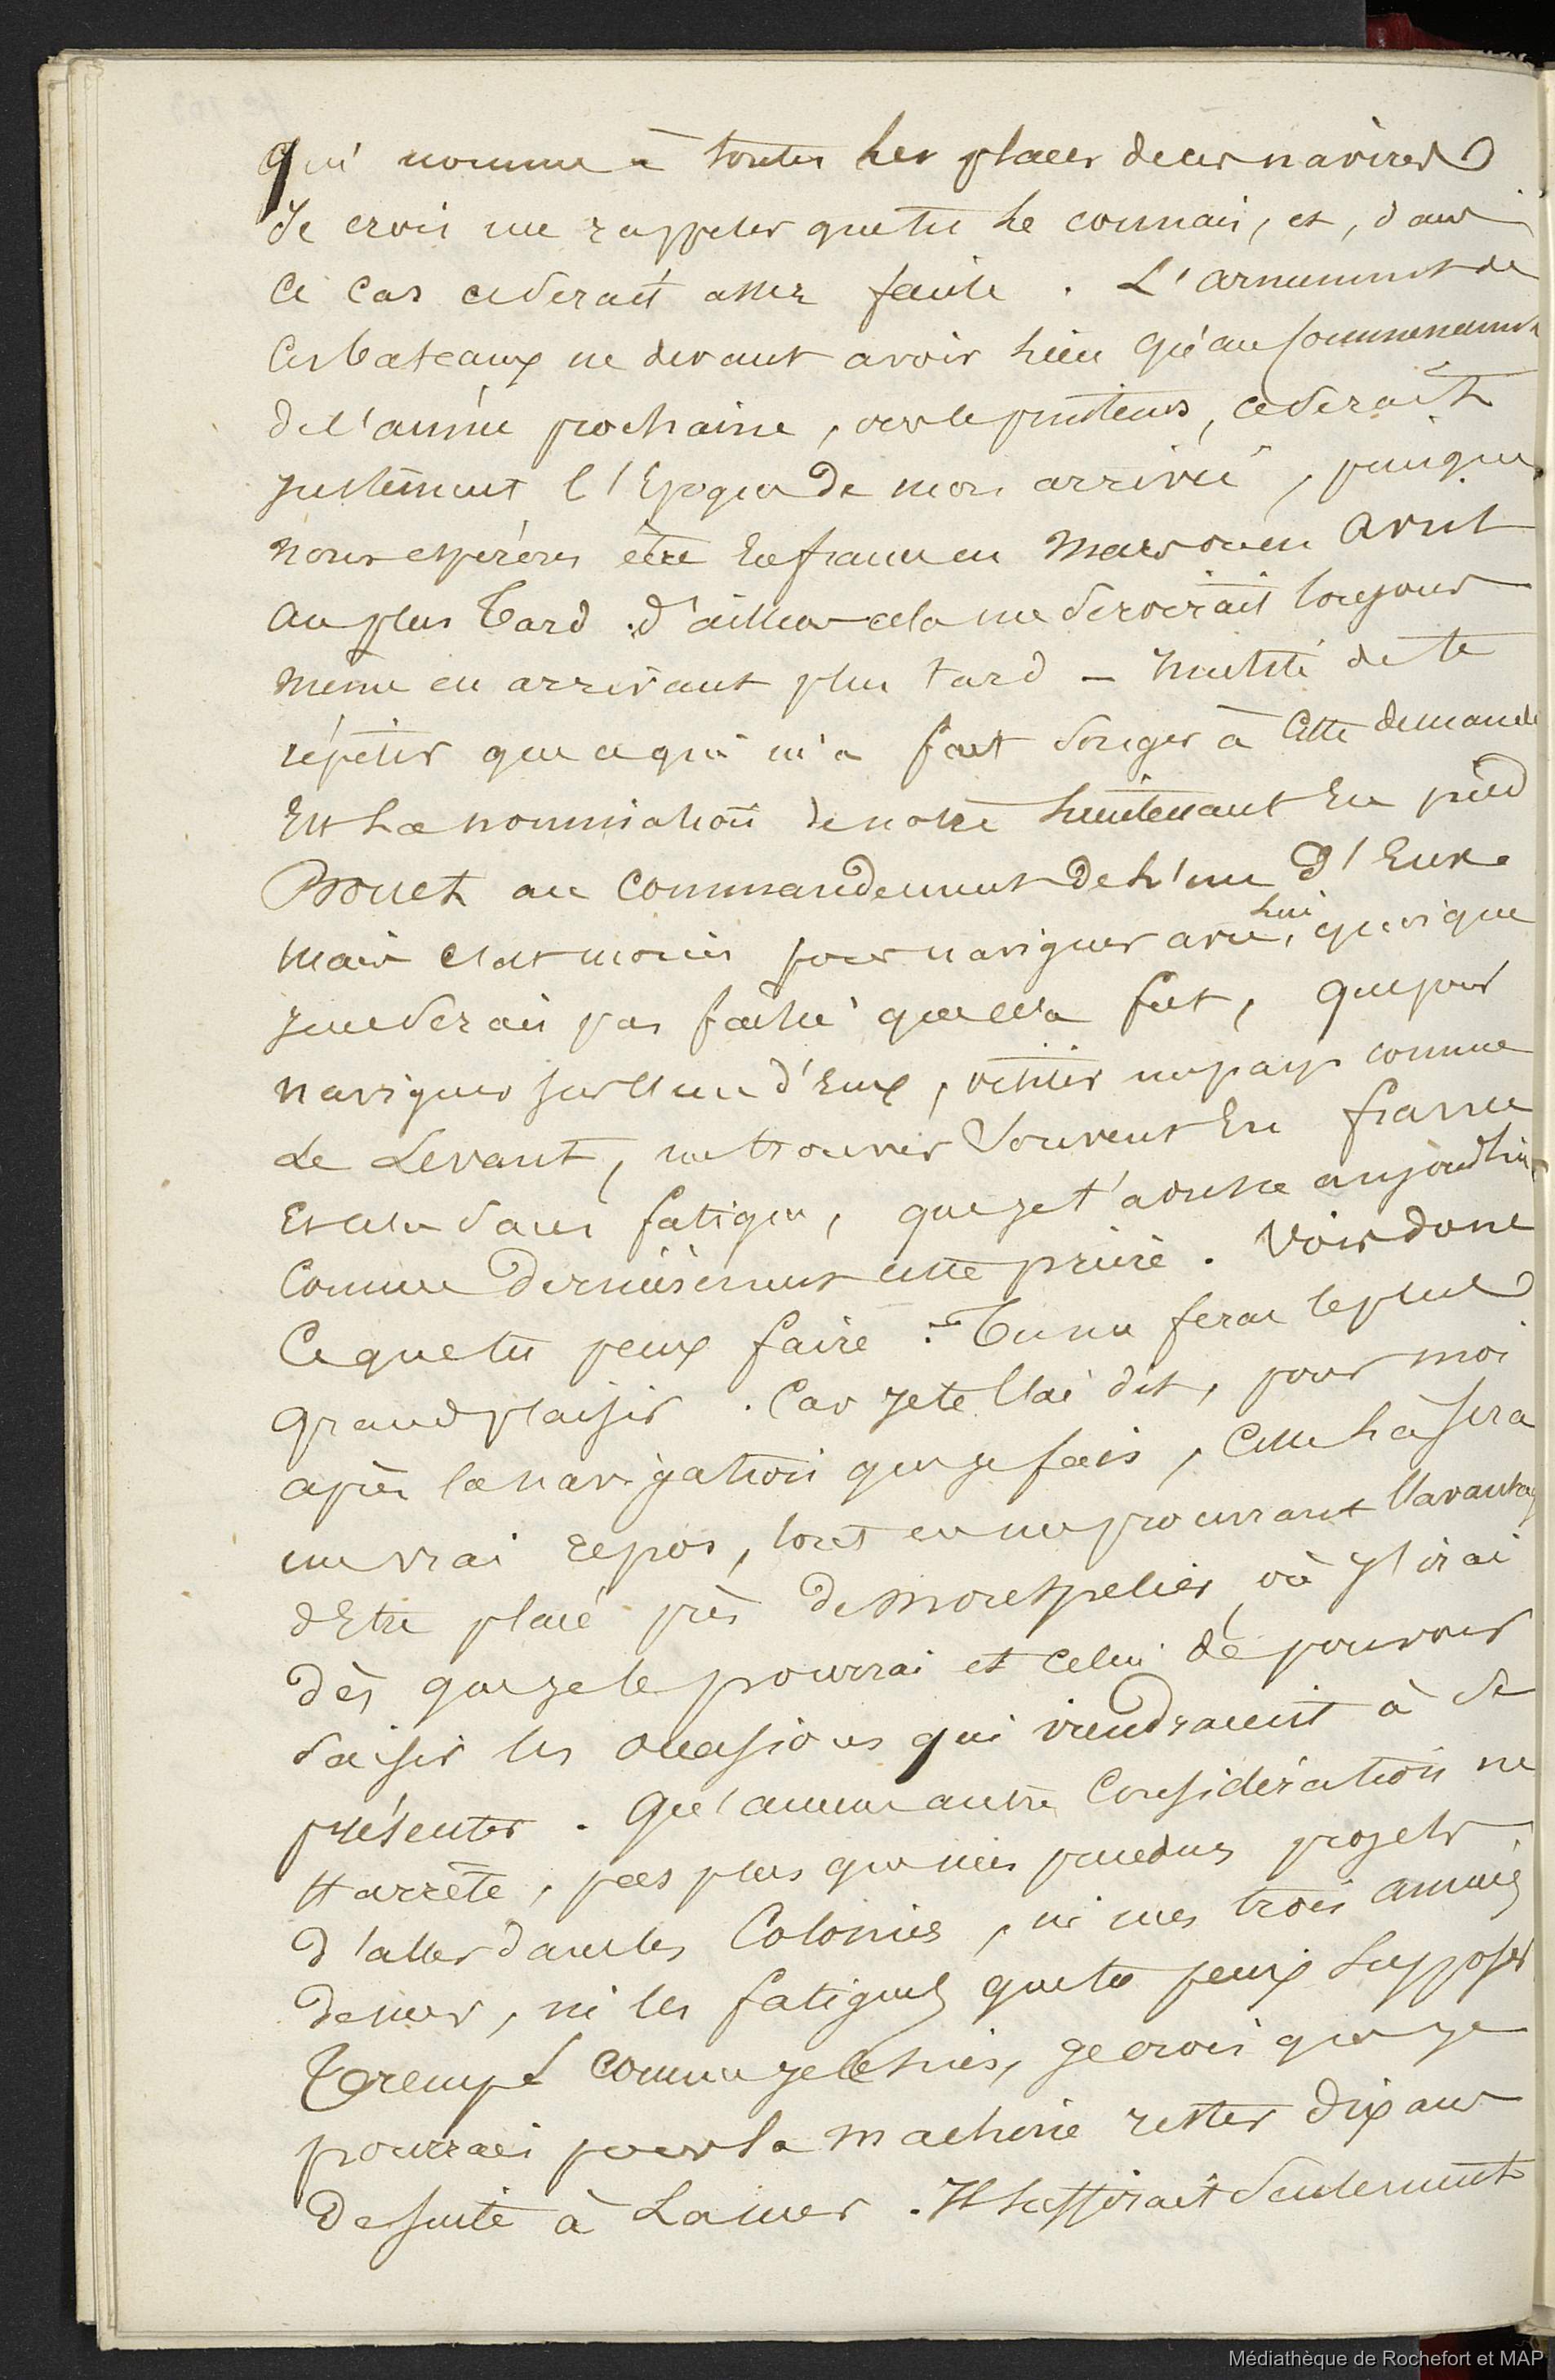 qui nomme à toutes les places de ces navires
Je crois me rappeler que tu le connais, et, dans
ce cas ce serait assez facile. L'armement de
ces bateaux ne devant avoir lieu qu'au commencement
de l'année prochaine, vers le printems, ce serait
justement l'Epoque de mon arrivée, puisque
nous espérons être En france en Mars ou en Avril
au plus Tard. d'ailleurs cela me servirait toujours
même en arrivant plus tard – Inutile de te
répéter que ce qui m'a fait songer à cette demande
Est La nomination de notre Lieutenant En pied
Bouet au commandement de L'un d'Eux.
Mais c'est moins pour naviguer avec lui, quoique
je ne serais pas fâché que cela fut, que pour
naviguer sur l'un d'Eux, visiter un pays comme
Le Levant, me trouver souvent En france
Et cela sans fatigue, que je t'adresse aujourd'hui
Comme dernièrement cette prière. Vois donc
Ce que tu peux faire. – Tu me feras le plus
grand plaisir. Car je te l'ai dit, pour moi
après la navigation que je fais, celle là sera
un vrai repos, tout en me procurant l'avantage
d'Etre placé près de Montpelier où j'irai
dès que je le pourrai et celui de pouvoir
saisir les occasions qui viendraient à se
présenter. Qu'aucune autre Considération ne
t'arrête, pas plus que mes prétendus projets
d'aller dans les Colonies, ni mes trois années
de mer, ni les fatigues que tu peux supposer
Trempé comme je le suis, je crois que je
pourrais pour la machine rester dix ans
de suite à La mer. Il suffirait seulement
Médiathèque de Rochefort et MAP